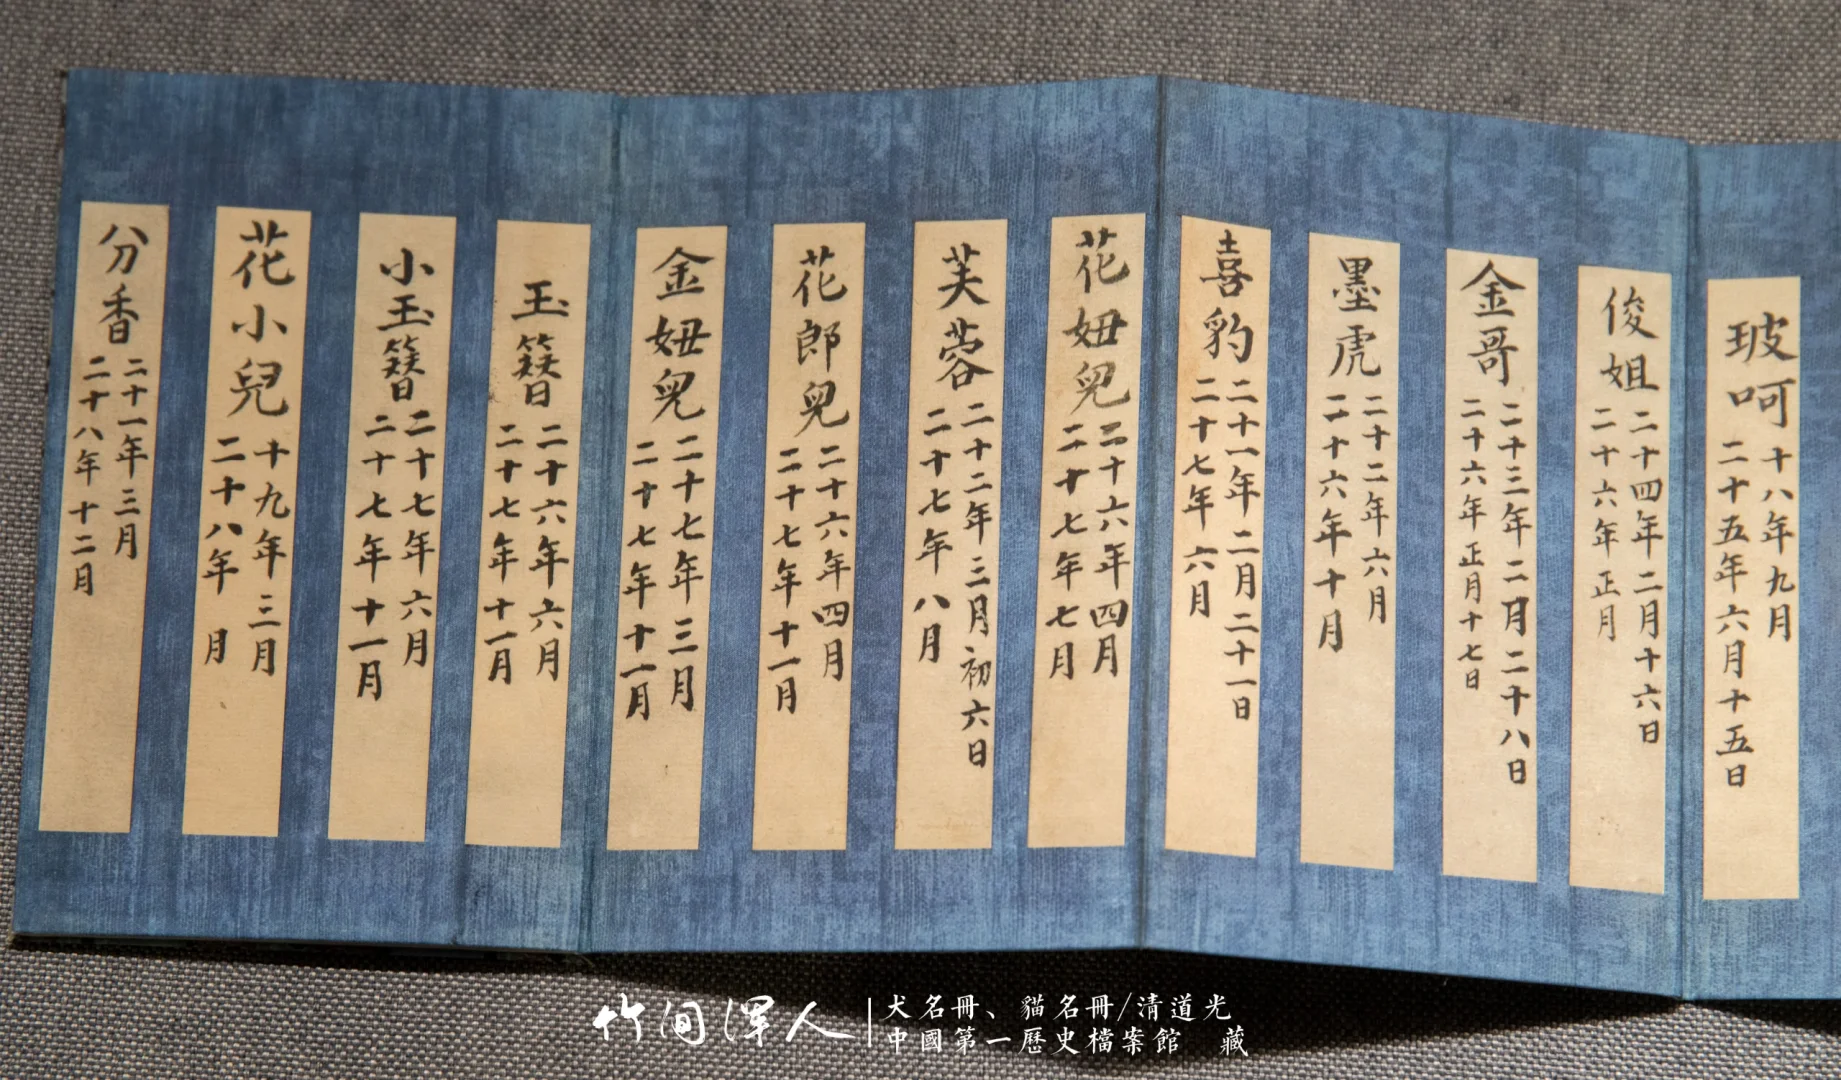 玻呵
十八年九月
二十五年六月十五日
俊姐
二十四年二月十六日
二十六年正月
金哥
二十三年二月二十八日
二十六年正月十七日
墨虎
二十二年六月
二十六年十月
喜豹
二十一年二月二十一日
二十七年六月
花妞兒
二十六年四月
二十七年七月
芙蓉
二十二年三月初六日
二十七年八月
花郎兒
二十六年四月
二十七年十一月
金妞兒
二十七年三月
二十七年十一月
玉簪
二十六年六月
二十七年十一月
小玉簪
二十七年六月
二十七年十一月
花小兒
十九年三月
二十八年 月
分香
二十一年三月
二十八年十二月
竹间浑人
犬名冊、貓名冊/清道光
中國第一歷史檔案館 藏